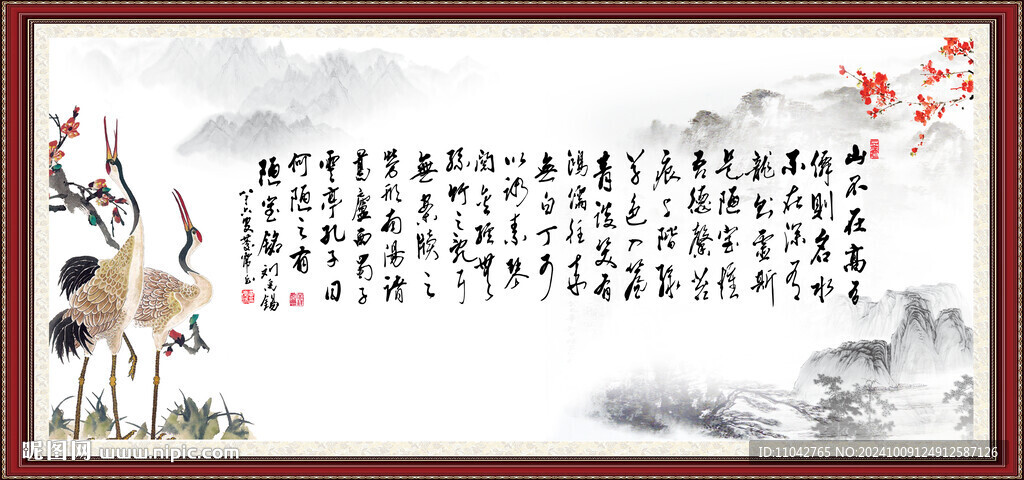 山不在高有
僊則名水
不在深有
龍則靈斯
是陋室惟
吾德馨苔
痕上階緑
草色入簾
青談笑有
鴻儒往来
無白丁可
以調素琴
閲金經無
絲竹之亂耳
無案牘之
勞形南陽諸
葛廬西蜀子
雲亭孔子曰
何陋之有
陋室銘 刘禹锡
昵图网 www.nipic.com
ID:11042765 NO:20241009124912587126